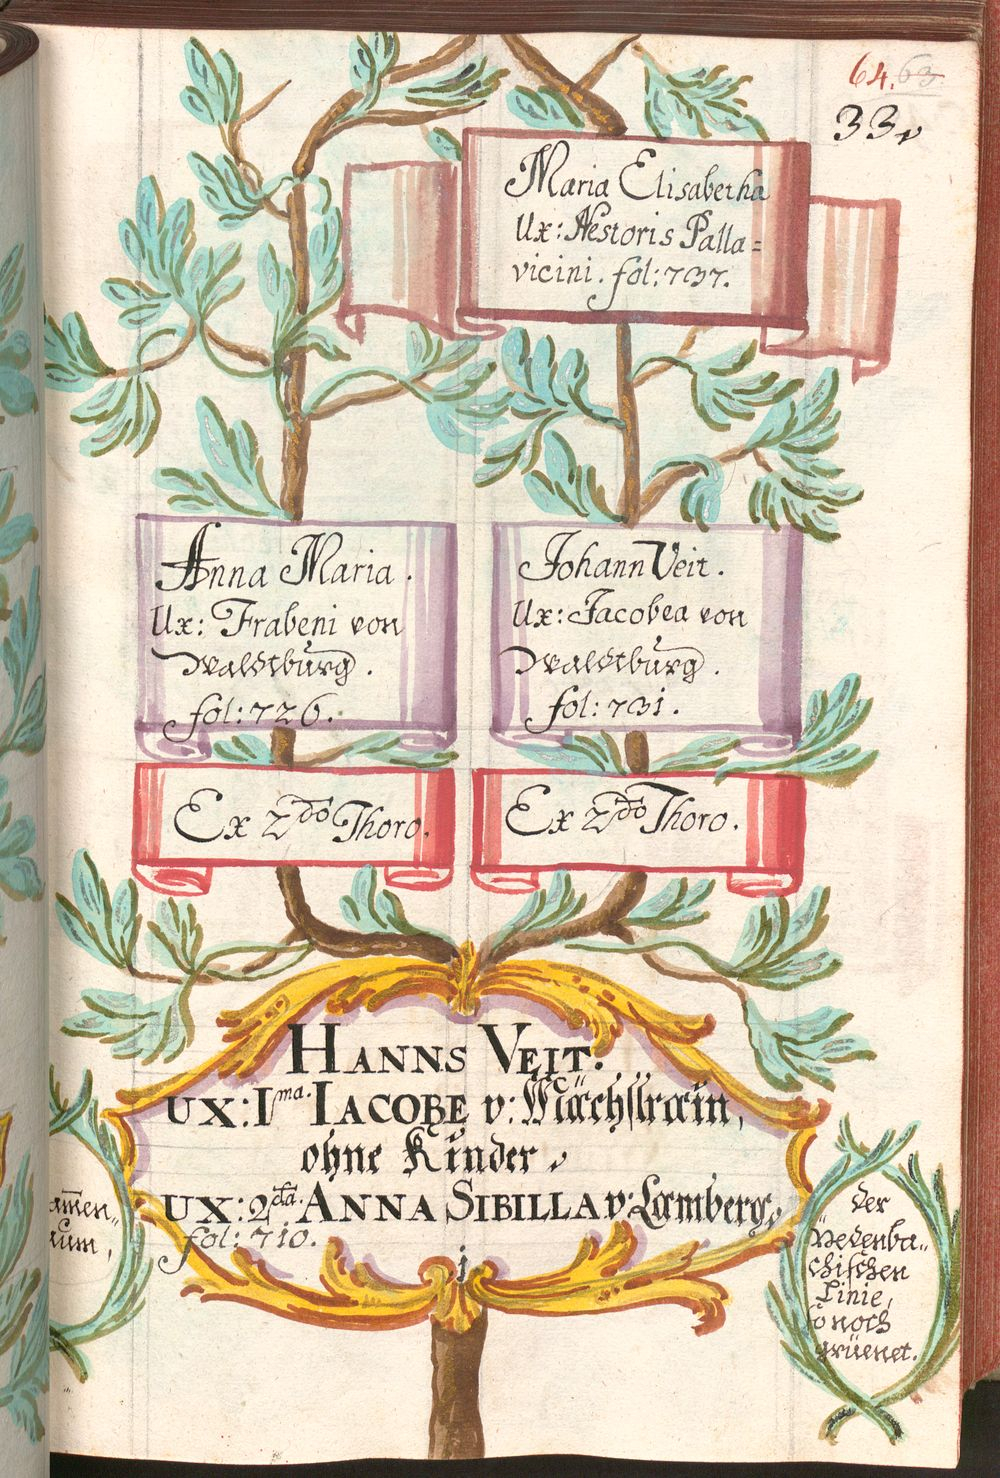 64. 63
33.
Maria Elisabetha
Ux: Nestoris Palla=
vicini. fol: 737.
Anna Maria.
Ux: Frabeni von
Waldtburg.
fol: 726.
Johann Veit.
Ux: Jacobea von
Waldtburg.
fol: 731.
Ex 2do Thoro.
Ex 2do Thoro.
HANNS VEIT.
UX: Ima. IACOBE v: Wächslrain,
ohne Kinder.
UX: 2da. ANNA SIBILLA v: Lamberg,
fol: 710.
1
amen„
um,
der
Nedenba„
chischen
Linie,
so noch
grüenet.